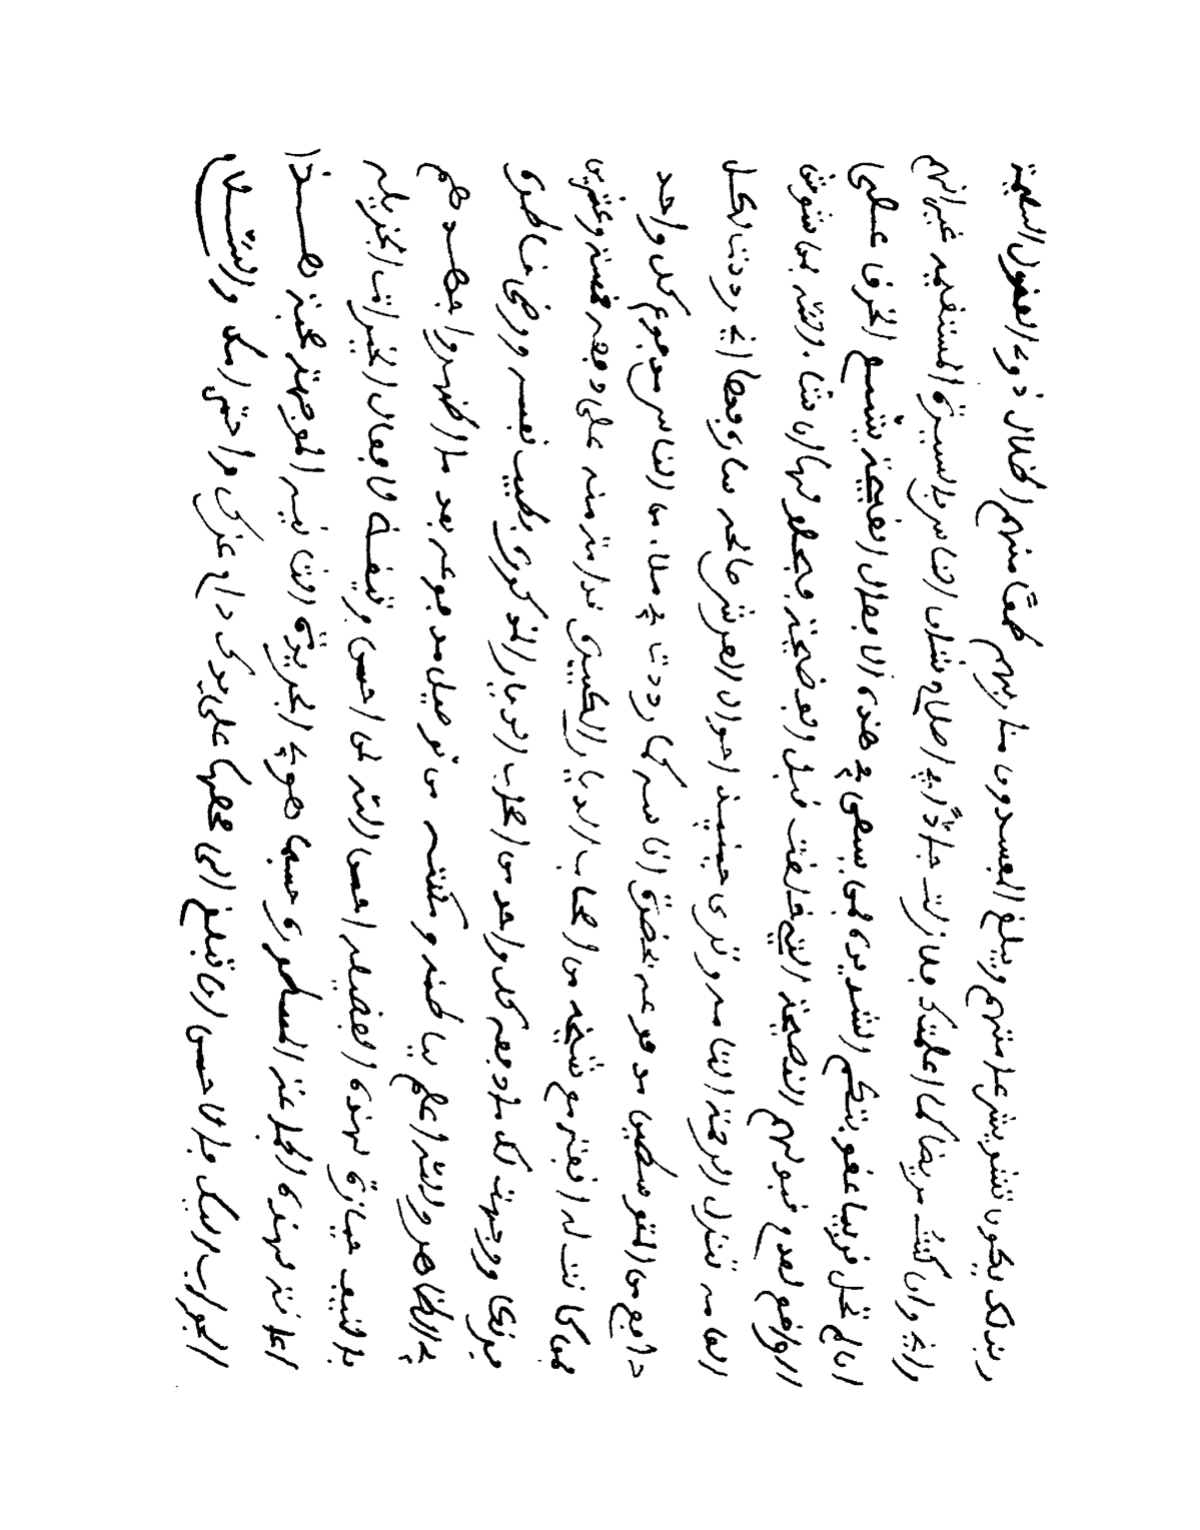 وبذلك يكون تشويش غدا منهم ويبلغ المفسدون مناربهم طمعًا منهم اخلال ذوي العقول السليمة
واني وان كنت مريضا كما اعلمتك فلازلت جادًّا في اصلاح شان الناس بالسيرة المستقيمة غير انهم
ان لم تحل قريبا عقوبتكم الشديدة لمن يسعى في هذه الافعال القبيحة يتسع الخرق على
الراقع لعدم قبولهم النصيحة التي قبل الفضيحة والله بما
العامه تنزل الرحمة التامه وترى حينيذ احوال العرش صالحه اني رددت لكل
دافع من المتوسطين مدفوعه بحضرة اناسه كما رددت في ملاء من الناس مدفوع كل واحد
ممن كانت له مع شيخه من اصحاب الديار الكبيرة منه على دفعه خمسة وعشرين
فرنكا ووجهت لك ما دفعه كل واحد من اصحاب الديار المذكورة بطيب نفسه ورضى خاطره
في الظاهر والله اعلم بباطنه ومكنته من توصيل مدفوعه بعد ما اظهروا جهدهم
حيازة لهذه الفضيله احسن الله لمن احسن لافعال الخيرات الجزيله
اعانة لهذه المسطورة حسبما هو في الجريدة الثانيه الموجهة صحبة هذا
الجواب اليك احسن ان تبلغ الى محلها على يدك دام عزك واحترامك والسلام